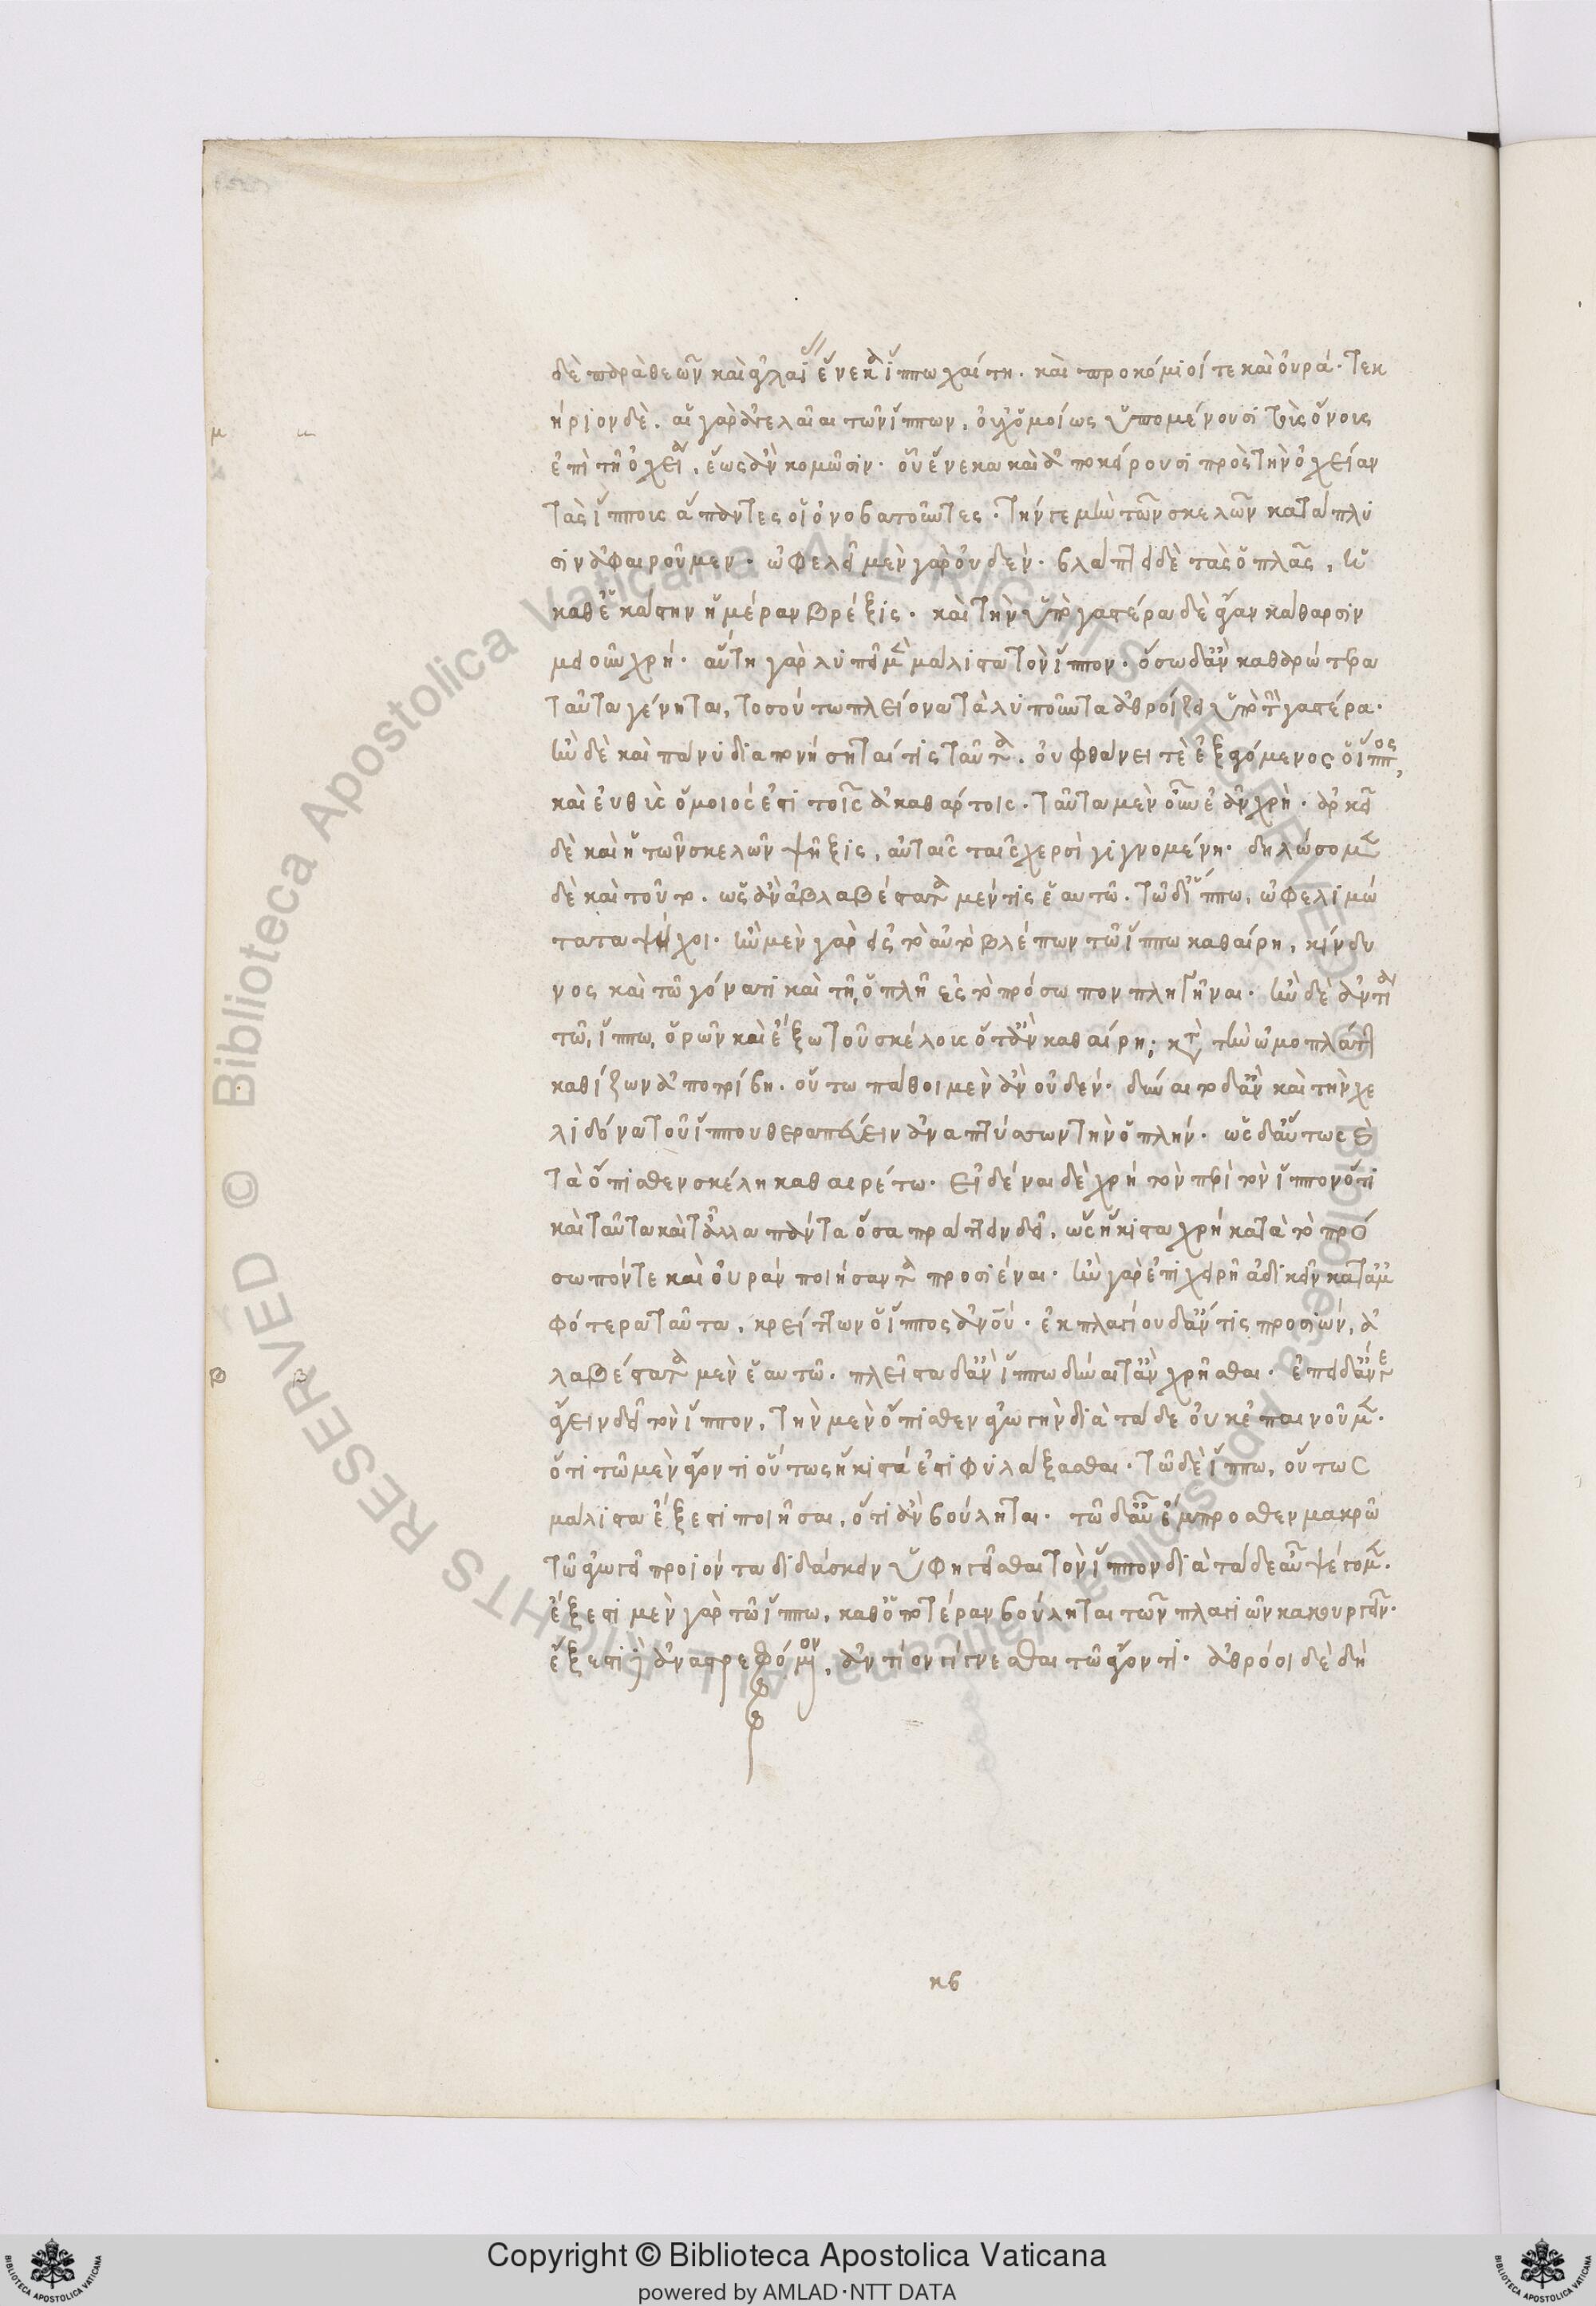 δὲ παρὰ θεῶν καὶ ἀγλαΐ ἕνεκα ἵππω χαίτη. καὶ προκόμιοί τε καὶ οὐρά. τεκ
ήριον δὲ. αἱ γὰρ ἀγελαῖαι τῶν ἵππων, οὐχ ὁμοίως ὑπομένουσι τοὺς ὄνους
ἐπὶ τῆ ὀχεία, ἕως ἂν κομῶσιν. οὗ ἕνεκα καὶ ἀποκείρουσι πρὸς τὴν ὀχείαν
τὰς ἵππους ἅπαντες οἱ ὀνοβατοῦντες. τήν γε μὴν τῶν σκελῶν κατάπλυ
σιν ἀφαιροῦμεν. ὠφελεῖ μὲν γὰρ οὐδέν. βλάπτει δὲ τὰς ὁπλὰς, ἡ
καθ' ἑκάστην ἡμέραν βρέξις. καὶ τὴν ὑπὸ γαστέρα δὲ ἄγαν κάθαρσιν
μειοῦν χρή. αὕτη γὰρ λυπεῖ μὲν μάλιστα τὸν ἵππον. ὅσω δ' ἂν καθαρώτερα
ταῦτα γένηται, τοσούτω πλείονα τὰ λυποῦντα ἀθροίζει ὑπὸ τὴν γαστέρα.
ἢν δὲ καὶ πάνυ διαπονήσηταί τις ταῦτα. οὐ φθάνει τὲ ἐξαγόμενος ὁ ἵππος,
καὶ εὐθὺς ὅμοιός ἐστι τοῖς ἀκαθάρτοις. ταῦτα μὲν οὖν ἐᾶν χρή. ἀρκεῖ
δὲ καὶ ἡ τῶν σκελῶν ψῆξις, αὐταῖς ταῖς χερσὶ γιγνομένη. δηλώσομεν
δὲ καὶ τοῦτο. ὡς ἂν ἀβλαβέστατα μέν τις ἑαυτῶ. τῶ δ' ἵππω, ὠφελιμώ
τατα ψήχοι. ἢν μὲν γὰρ εἰς τὸ αὐτὸ βλέπων τῶ ἵππω καθαίρη, κίνδυ
νος καὶ τῶ γόνατι καὶ τῆ ὁπλῆ εἰς τὸ πρόσωπον πληγῆναι. ἢν δὲ ἀντία
τῶ, ἵππω, ὁρῶν καὶ ἔξω τοῦ σκέλους ὅταν καθαίρη, κατὰ τὴν ὠμοπλάτην
καθίζων ἀποτρίβη. οὕτω πάθοι μὲν ἂν οὐδέν. δύναιτο δ' ἂν καὶ τὴν χε
λιδόνα τοῦ ἵππου θεραπεύειν ἀναπτύσσων τὴν ὁπλήν. ὡς δ' αὕτως καὶ
τὰ ὄπισθεν σκέλη καθαιρέτω. εἰδέναι δὲ χρή τὸν περὶ τὸν ἵππον ὅτι
καὶ ταῦτα καὶ τἄλλα πάντα ὅσα πράττειν δεῖ, ὡς ἥκιστα χρή κατὰ τὸ πρό
σωπόν τε καὶ οὐρὰν ποιήσαντα προσιέναι. ἢν γὰρ ἐπιχειρῆ ἀδικεῖν κατ' ἀμ
φότερα ταῦτα, κρείττων ὁ ἵππος ἀνου. ἐκ πλαγίου δ' ἄν τις προσιών, ἀ
λαβέστατα μὲν ἑαυτῶ. πλεῖστα δ' ἂν ἵππω δύναιτ' ἂν χρῆσθαι. ἐπειδὰν δὲ
ἄγειν δεῖ τὸν ἵππον, τὴν μὲν ὄπισθεν ἀγωγὴν διὰ τάδε οὐκ ἐπαινοῦμεν.
ὅτι τῶ μὲν ἄγοντι οὕτως ἥκιστά ἐστι φυλάξασθαι. τῶ δὲ ἵππω, οὕτως
μάλιστα ἔξεστι ποιῆσαι, ὅτι ἂν βούληται. τῶ δ' αὖ ἔμπροσθεν μακρῶ
τῶ ἀγωγεῖ προϊόντα διδάσκειν ὑφηγεῖσθαι τὸν ἵππον διὰ τάδε αὖ ψέγομεν.
ἔξεστι μὲν γὰρ τῶ ἵππω, καθ' ὁποτέραν βούληται τῶν πλαγίων κακουργεῖν.
ἔξεστι δὲ ἀναστρεφόμενον, ἀντίον γίγνεσθαι τῶ ἄγοντι. ἀθρόοι δὲ δή
κβ
Copyright © Biblioteca Apostolica Vaticana
powered by AMLAD·NTT DATA